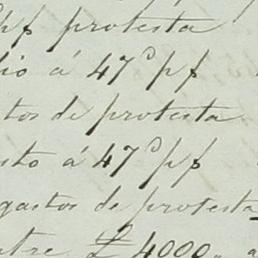 pf protesta
dio á 47 º pf
tos de protesta
sto á 47 º pf
gastos de protesta
ntre £ 4000